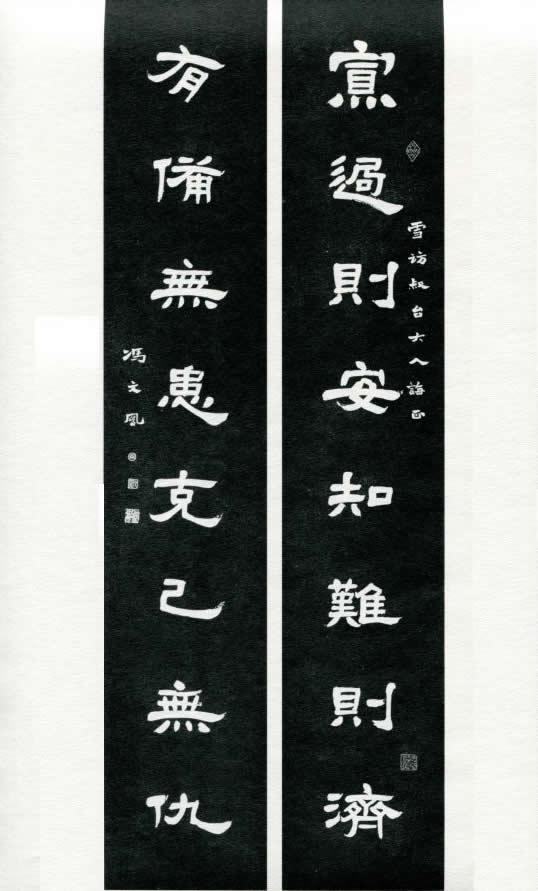 雪访叔台大人誨正
寡過則安知難則濟
有備無患克己無仇
馮文鳳